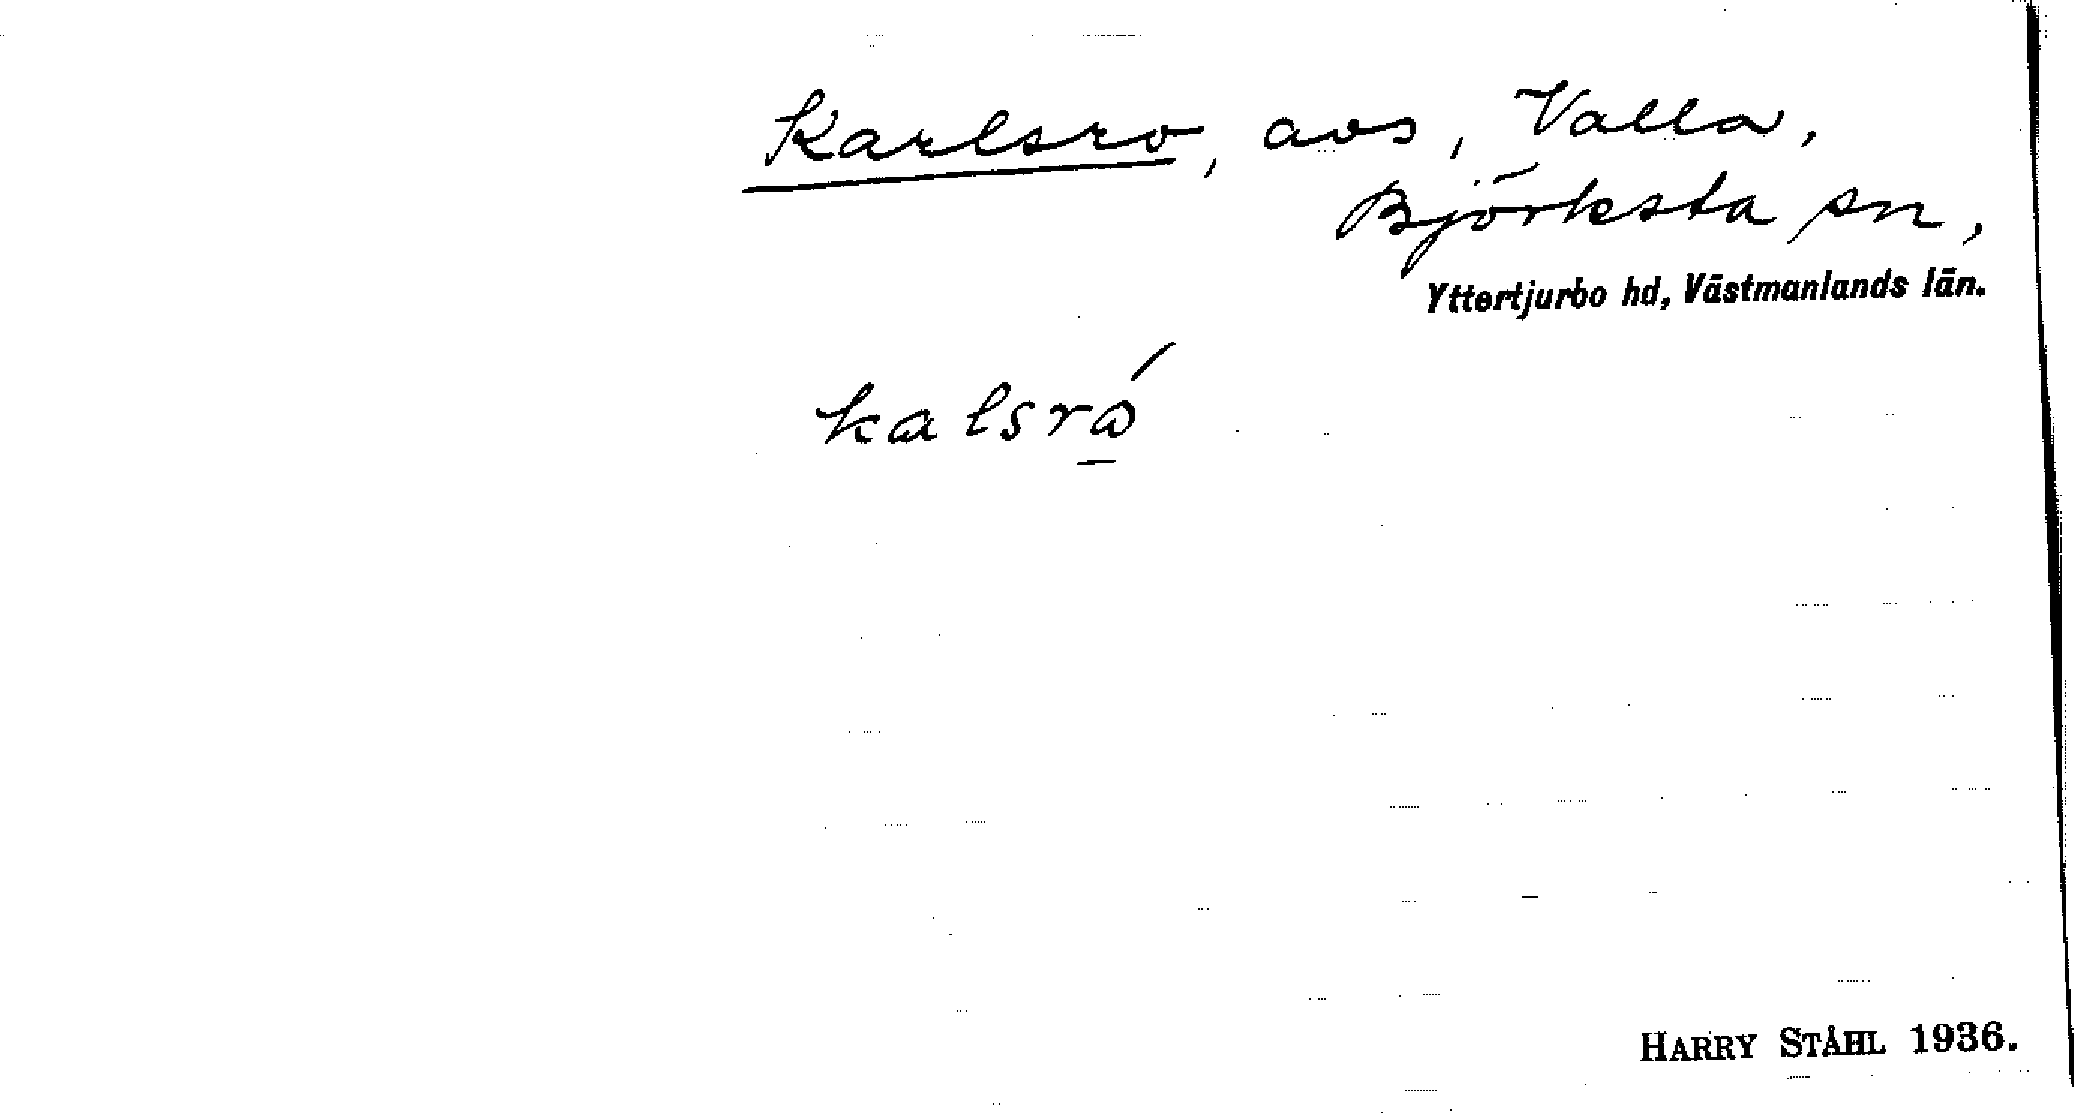 Karlsro, avs, Valla,
Björksta sn,
Yttertjurbo hd, Västmanlands län.
kalsró̱
HARRY STÅHL 1936.